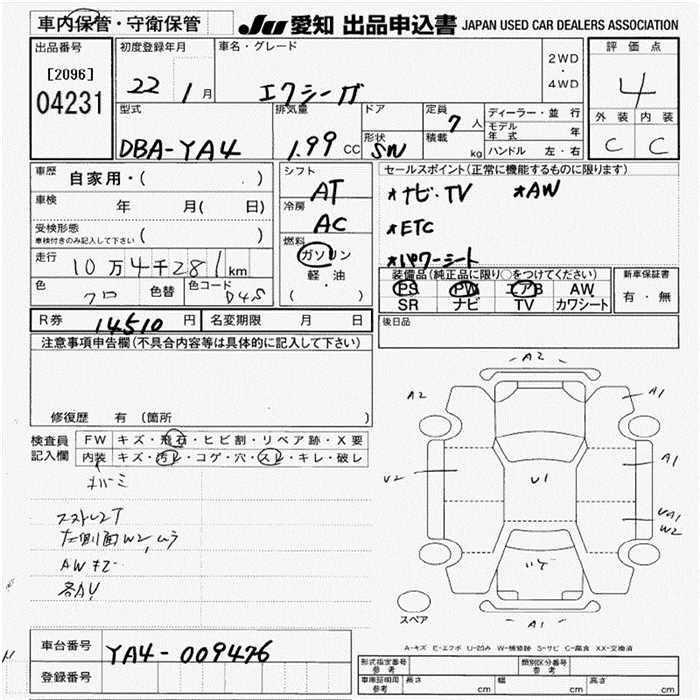 車内保管・守衛保管 JU 愛知 出品申込書 JAPAN USED CAR DEALERS ASSOCIATION
出品番号 初度登録年月 車名・グレード 2WD・4WD 評価点
[2096] 22 1月 エクシーガ 4
04231
型式 排気量 ドア 定員 ディーラー・並行 外装 内装
DBA-YA4 1.99 CC 形状 SW 7人 モデル年式 年 C C
積載 kg ハンドル 左・右
車歴 自家用・( ) シフト AT セールスポイント(正常に機能するものに限ります)
車検 年 月( 日) 冷房 AC *ナビ・TV *AW
受検形態 ( ) *ETC
車検付きのみ記入して下さい 燃料 *パワーシート
走行 10万4千281km ガソリン 装備品(純正品に限り○をつけてください) 新車保証書
色 クロ 色替 色コード D4S 軽油 PS PW エアB AW 有・無
( ・ ) SR ナビ TV カワシート
R券 14510円 名変期限 月 日 後日品
注意事項申告欄(不具合内容等は具体的に記入して下さい)
修復歴 有 (箇所 )
検査員記入欄 FW キズ・飛石・ヒビ割・リペア跡・X要
内装 キズ・汚レ・コゲ・穴・スレ・キレ・破レ
左側面W2,ムラ
各AU
A2
A2 A1
A1
U2 U1
UA1
W2
A1
スペア
A-キズ E-エクボ U-凹み W-補修跡 S-サビ C-腐食 XX-交換済
車台番号 YA4-009476
登録番号
形式指定番号 参考 類別区分番号 参考
車庫証明用 参考 長さ cm 幅 cm 高さ cm